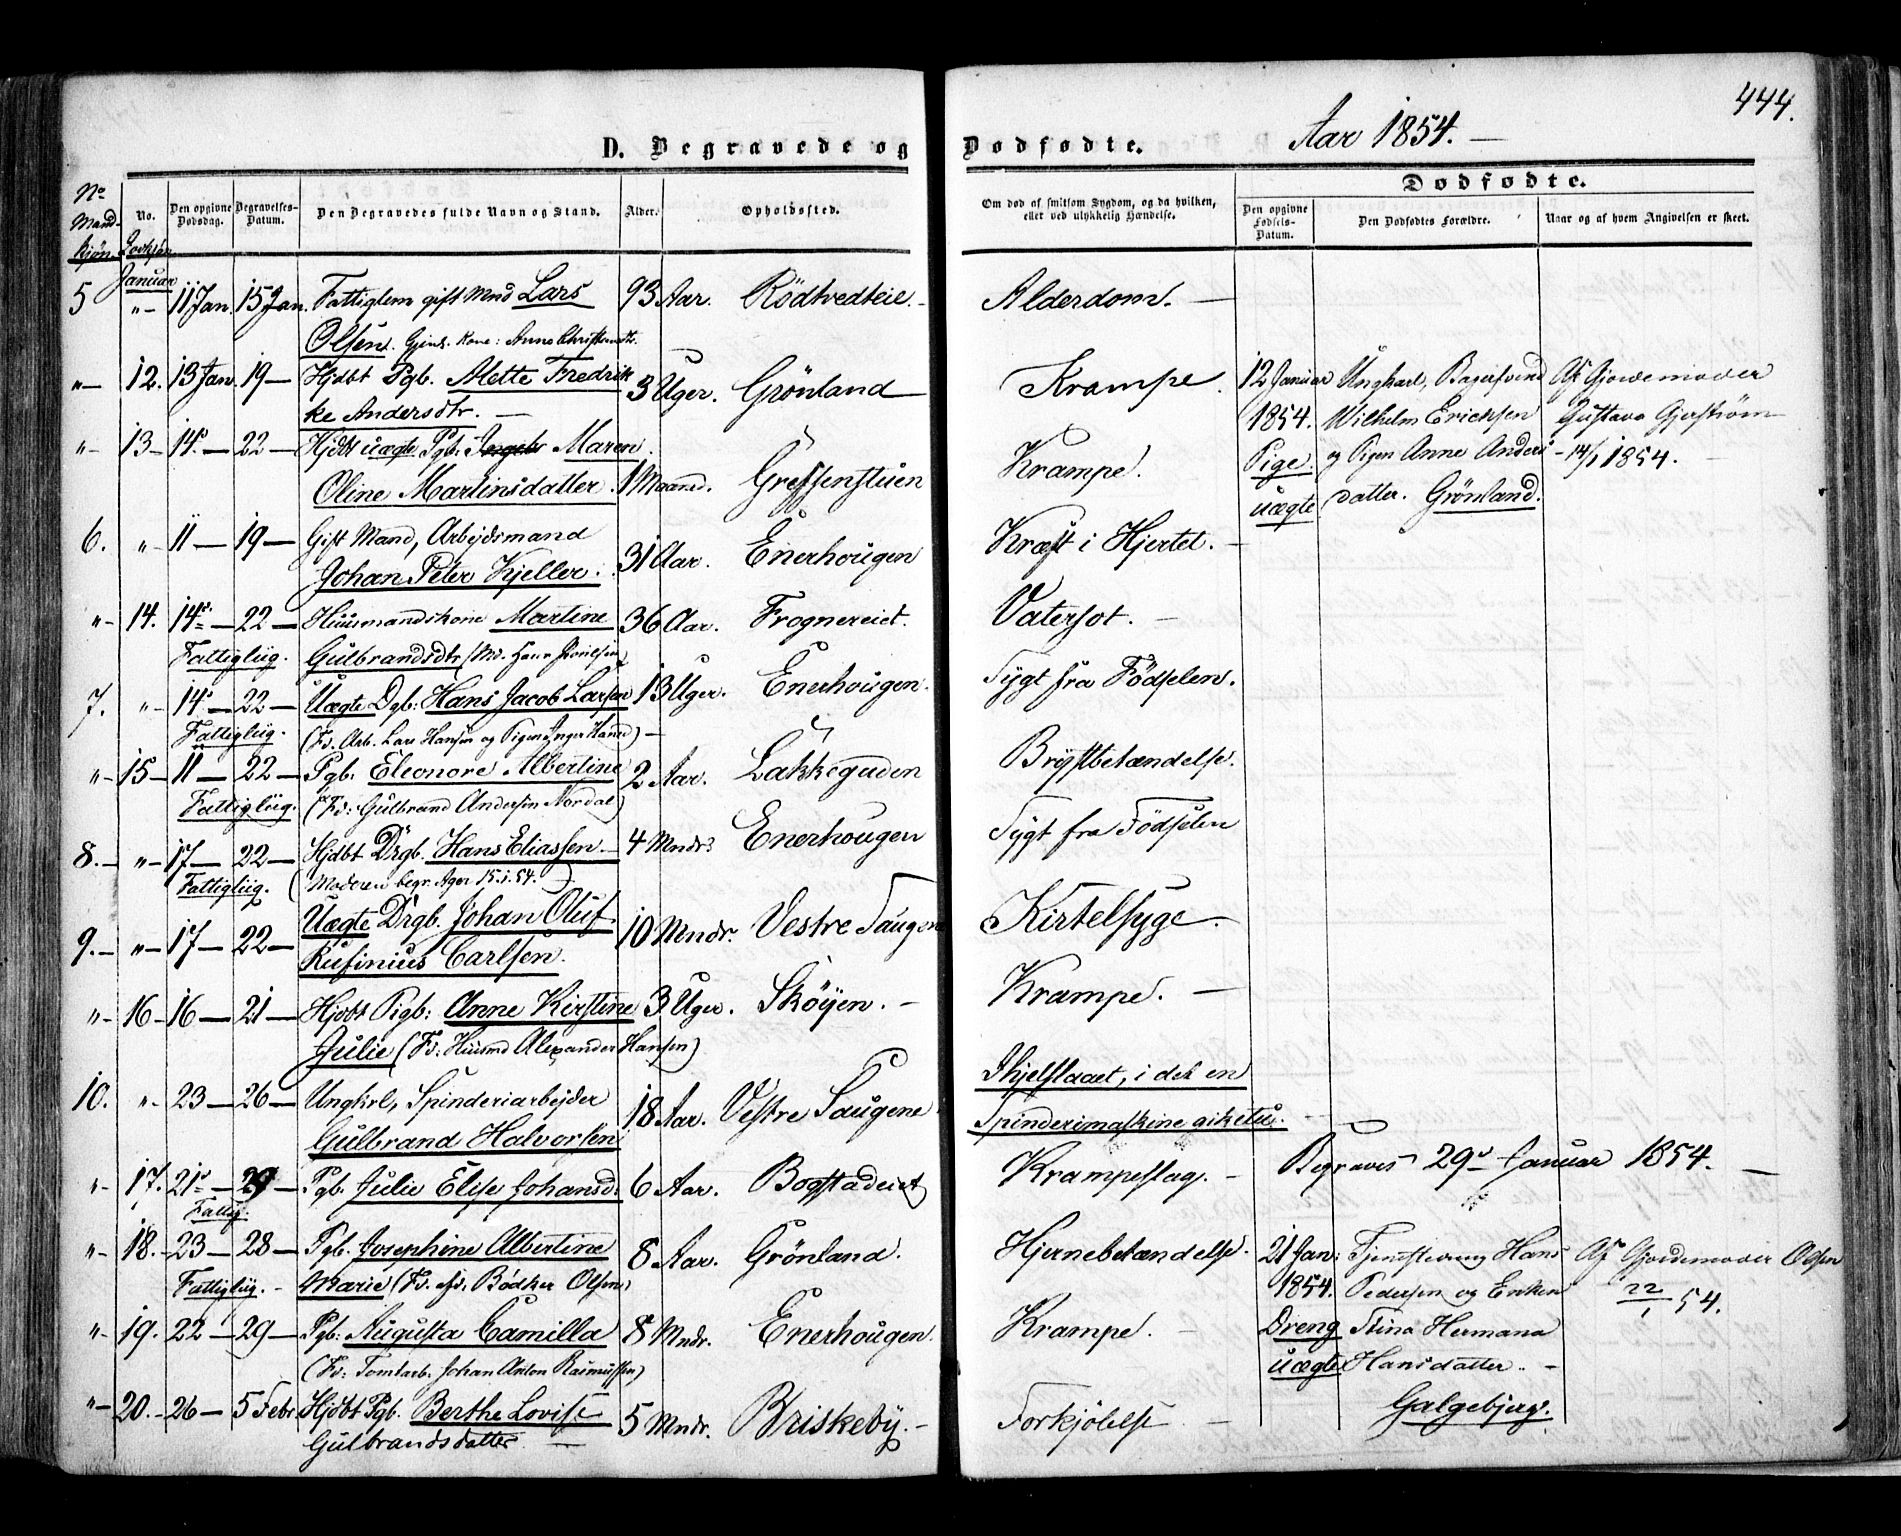 444.
Aar 1854. —
D. Begravede og Dødfødte.
Dødfødte.
No Mand-kjøn.
No. Qvkjøn
Den opgivne Dødsdag.
Begravelses-Datum.
Den Begravedes fulde Navn og Stand.
Alder.
Opholdssted.
Om død af smitsom Sygdom, og da hvilken, eller ved ulykkelig Hændelse.
Den opgivne Fødsels-Datum.
Den Dødfødtes Forældre.
Naar og af hvem Angivelsen er skeet.
Januar
5 „– 11 Jan. 15 Jan. Fattiglem gift Mnd Lars 93 Aar. Rödtvedteie. – Alderdom. —
Olsen. Kone: Anne Christensdtr.
„– 12. 13 Jan. 19 — Hjdbt Pgb. Alette Fredrik 3 Uger. Grönland Krampe. 12 Januar Ungkarl, Bagersvend Af Gjordemoder
ke Andersdtr. — 1854. Wilhelm Ericksen Gustava Gjerström
„– 13 – 14de — 22 — Hjdbt uægte Pgb. Maren Pige. og Pigen Anne Anders – 14/1 1854. –
Oline Martinsdatter. 1 Maaned. Grefsenstuen Krampe. uægte datter. Grönland.
6. „– 11 — 19 — Gift Mand, Arbejdsmand
Johan Peter Kjeller. 31 Aar. Enerhougen Kræft i Hjertet. –
„– 14. 14de — 22 — Huusmandskone Martine 36 Aar. Frognereiet. Vatersot. –
Fattigliig. Gulbrandsdtr
7. „– 14de — 22 — Uægte Dgb: Hans Jacob Larsen 13 Uger. Enerhougen. Sygt fra Födselen.
Fattigliig. (Fd. Arb. Lars Hansen og Pigen Inger Hansd) —
„– 15 – 11 — 22 — Pgb. Eleonore Albertine 2 Aar. Lakkegaden Brystbetændelse.
Fattigliig. (Fd: Gulbrand Andersen Nordal)
8. – „– 17 — 22 — Hjdbt Drgb. Hans Eliassen – 4 Mndr Enerhougen Sygt fra Födselen
Fattigliig. (Moderen begr. Ager 15.1.54.)
9. – „– 17 — 22 — Uægte Drgb. Johan Oluf 10 Mndr. Vestre Saugene Kirtelsyge. –
Rufinius Carlsen.
„– 16 – 16 — 21 — Hjdbt Pigb: Anne Kirstine 3 Uger. Sköyen. – Krampe. —
Julie (Fd: Huusmd Alexander Hansen)
10. „– 23 — 26 — Ungkrl, Spinderiarbejder 18 Aar. Vestre Saugene Ihjelslaaet, i det en
Gulbrand Halvorsen Spinderimaskine gik itu.
„– 17. 21de — 29 — Pgb. Julie Elise Johansd. 6 Aar. Bogstadeiet Krampeslag. – Begraves 29de Januar 1854. —
Fattig.
„– 18. 23 — 28 — Pgb. Josephine Albertine 8 Aar. Grönland. Hjernebetændelse. 21 Jan: Tjenestedreng Hans Af Gjordemoder Olsen
Fattigliig. – Marie (Fd. Bödker Olsen) 1854. Pedersen og Enken 22/1 54.
„– 19. 22 — 29 — Pgb: Augusta Camilla 8 Mndr. Enerhougen. Krampe. – Dreng Stina Hermana
(Fd: Tomtarb. Johan Anton Rasmussen) uægte Hansdatter. –
„– 20. – 26 — 5 Febr. Hjdbt Pgb. Berthe Lovise 5 Mndr. Briskeby. – Forkjölelse — Galgebjerg.
Gulbrandsdatter —